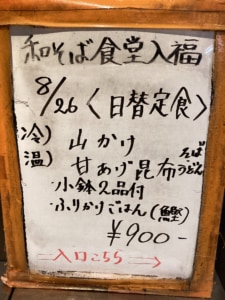 和そば食堂入福
8/26 〈日替定食〉
冷) 山かけ
温) 甘あげ昆布 そば うどん
・小鉢2品付
・ふりかけごはん(鰹)
¥900-
=入口こちら⇒